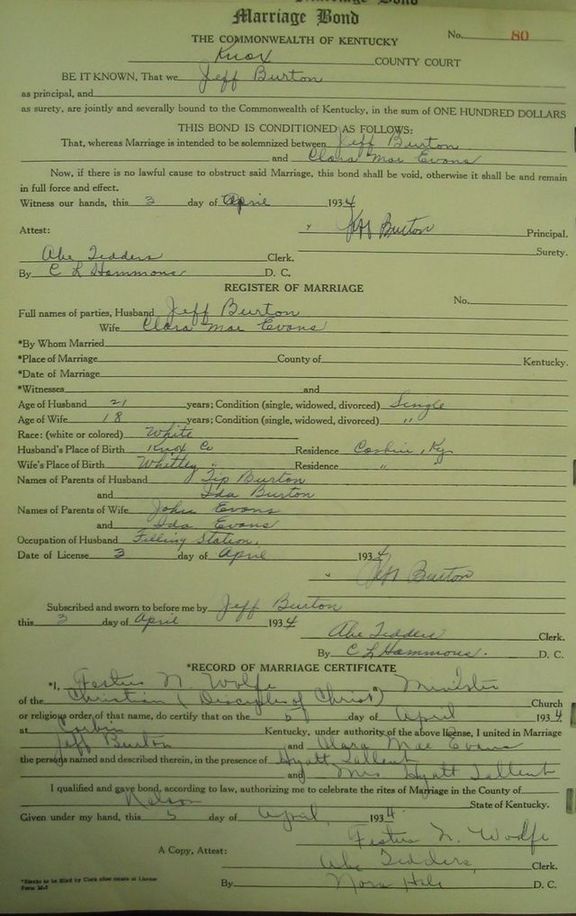 Marriage Bond
Marriage Bond
No. 80
THE COMMONWEALTH OF KENTUCKY
Knox COUNTY COURT
BE IT KNOWN, That we Jeff Burton
as principal, and
as surety, are jointly and severally bound to the Commonwealth of Kentucky, in the sum of ONE HUNDRED DOLLARS
THIS BOND IS CONDITIONED AS FOLLOWS:
That, whereas Marriage is intended to be solemnized between Jeff Burton
and Clara Mae Evans
Now, if there is no lawful cause to obstruct said Marriage, this bond shall be void, otherwise it shall be and remain
in full force and effect.
Witness our hands, this 3 day of April 1934
Attest: x Jeff Burton Principal.
Surety.
Abe Tedders Clerk.
By C L Hammons D. C.
REGISTER OF MARRIAGE
No.
Full names of parties, Husband Jeff Burton
Wife Clara Mae Evans
*By Whom Married
*Place of Marriage County of Kentucky.
*Date of Marriage
*Witnesses and
Age of Husband 21 years; Condition (single, widowed, divorced) Single
Age of Wife 18 years; Condition (single, widowed, divorced) "
Race: (white or colored) White
Husband's Place of Birth Knox Co Residence Corbin, Ky
Wife's Place of Birth Whitley " Residence "
Names of Parents of Husband Tip Burton
and Ida Burton
Names of Parents of Wife John Evans
and Ida Evans
Occupation of Husband Filling Station.
Date of License 3 day of April 1934
Jeff Burton
Subscribed and sworn to before me by Jeff Burton
this 3 day of April 1934
Abe Tedders Clerk.
By C L Hammons. D. C.
*RECORD OF MARRIAGE CERTIFICATE
*I, Festus N. Wolfe a Minister
of the Christian (Disciples of Christ) Church
or religious order of that name, do certify that on the 5 day of April 1934
at Corbin Kentucky, under authority of the above license, I united in Marriage
Jeff Burton and Clara Mae Evans
the persons named and described therein, in the presence of Hyatt Sallent
and Mrs Hyatt Sallent
I qualified and gave bond, according to law, authorizing me to celebrate the rites of Marriage in the County of
Nelson State of Kentucky.
Given under my hand, this 5 day of April, 1934
Festus N. Wolfe
A Copy, Attest: Abe Tedders, Clerk.
By Nora D. C.
*Blanks to be filled by Clerk